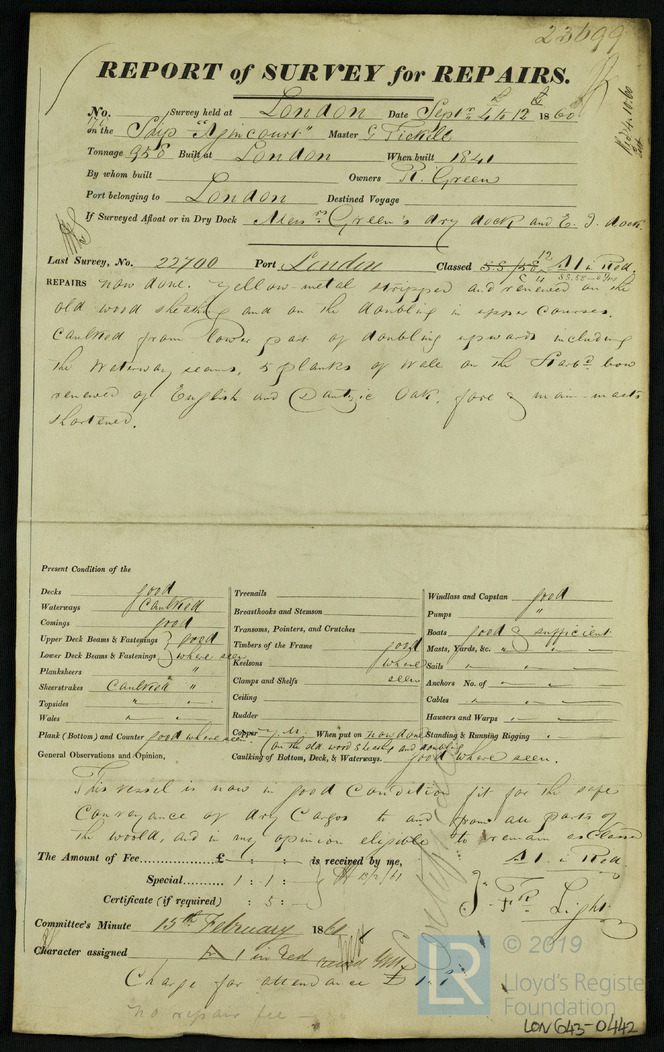 23699
REPORT of SURVEY for REPAIRS.
No. Survey held at London Date Septr 4, 5, 12 1860
on the Ship "Agincourt" Master G Tickell
Tonnage 958 Built at London When built 1841
By whom built Owners R. Green
Port belonging to London Destined Voyage
If Surveyed Afloat or in Dry Dock Messrs Green's dry dock and E. I. dock
Last Survey, No. 22700 Port London Classed A1 in Red.
REPAIRS now done. Yellow-metal stripped and renewed on the
old wood sheathg and on the doubling in upper courses.
Caulked from lower part of doubling upwards including
the Waterway seams, 5 planks of Wale on the Starbd bow
renewed of English and Dantzic Oak, fore & main-masts
shortened.
Present Condition of the
Decks good
Waterways Caulked
Comings good
Upper Deck Beams & Fastenings } good
Lower Deck Beams & Fastenings } where seen
Planksheers "
Sheerstrakes Caulked "
Topsides " "
Wales " "
Plank (Bottom) and Counter good where seen
General Observations and Opinion,
Treenails
Breasthooks and Stemson
Transoms, Pointers, and Crutches
Timbers of the Frame good
Keelsons where
Clamps and Shelfs seen
Ceiling
Rudder
Copper Y. M. When put on now done
on the old wood sheathg and doubling
Caulking of Bottom, Deck, & Waterways. good where seen.
Windlass and Capstan good
Pumps "
Boats good & sufficient
Masts, Yards, &c. " "
Sails " "
Anchors No. of " "
Cables " "
Hausers and Warps " "
Standing & Running Rigging "
This vessel is now in good Condition fit for the safe
Conveyance of dry Cargos to and from all parts of
the world, and in my opinion eligible to remain as classed
A1 in Red
The Amount of Fee £ - : - : - is received by me,
Special 1 : 1 : -
13/2/61
Certificate (if required) : 5 : -
J. Fr Light
Committee's Minute 15th February 1861
Character assigned A 1 in Red
Charge for attendance £ 1.1.
no repair fee -
LR © 2019
Lloyd's Register
Foundation
LON 643-0442